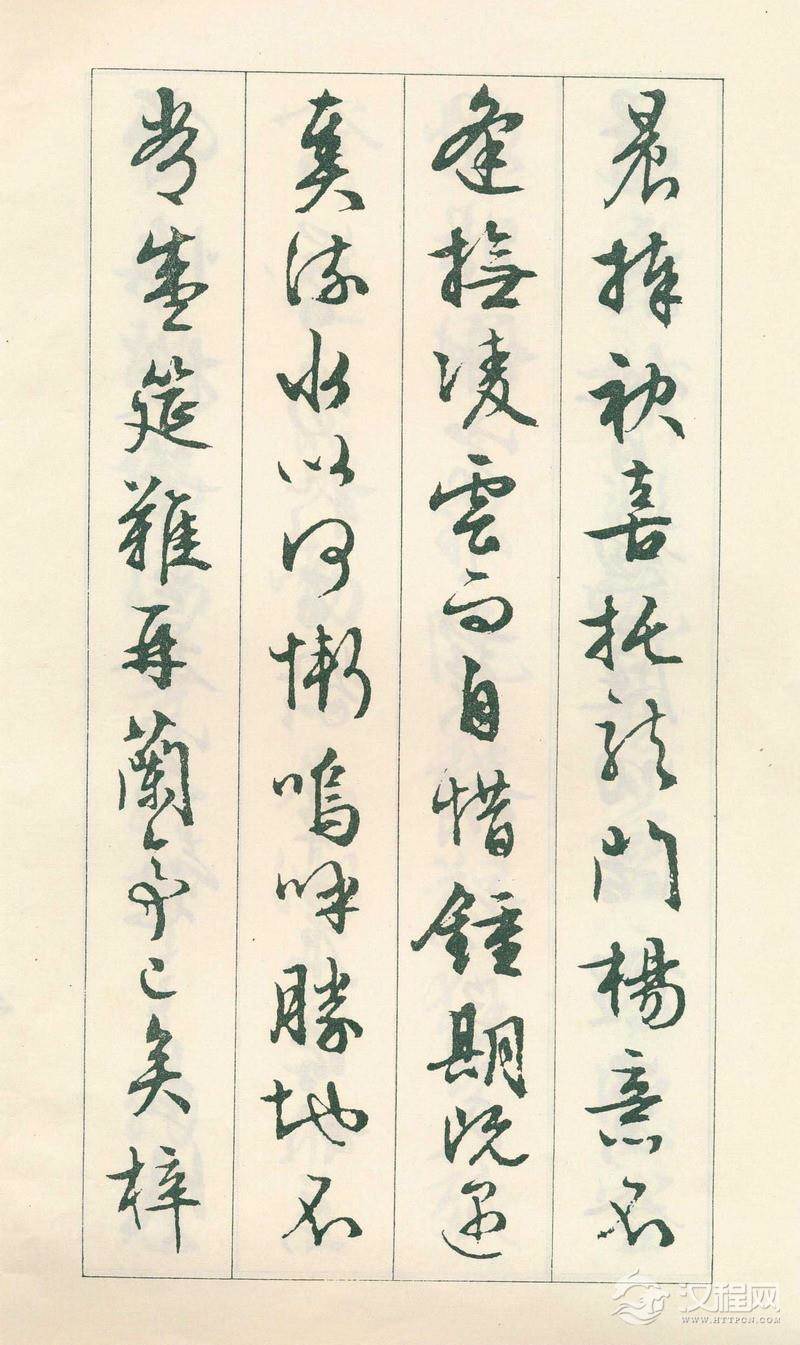 晨捧袂喜托龍門楊意不
逢撫凌雲而自惜鍾期既遇
奏流水以何慚嗚呼勝地不
常盛筵難再蘭亭已矣梓
汉程网
WWW.HTTPCN.COM